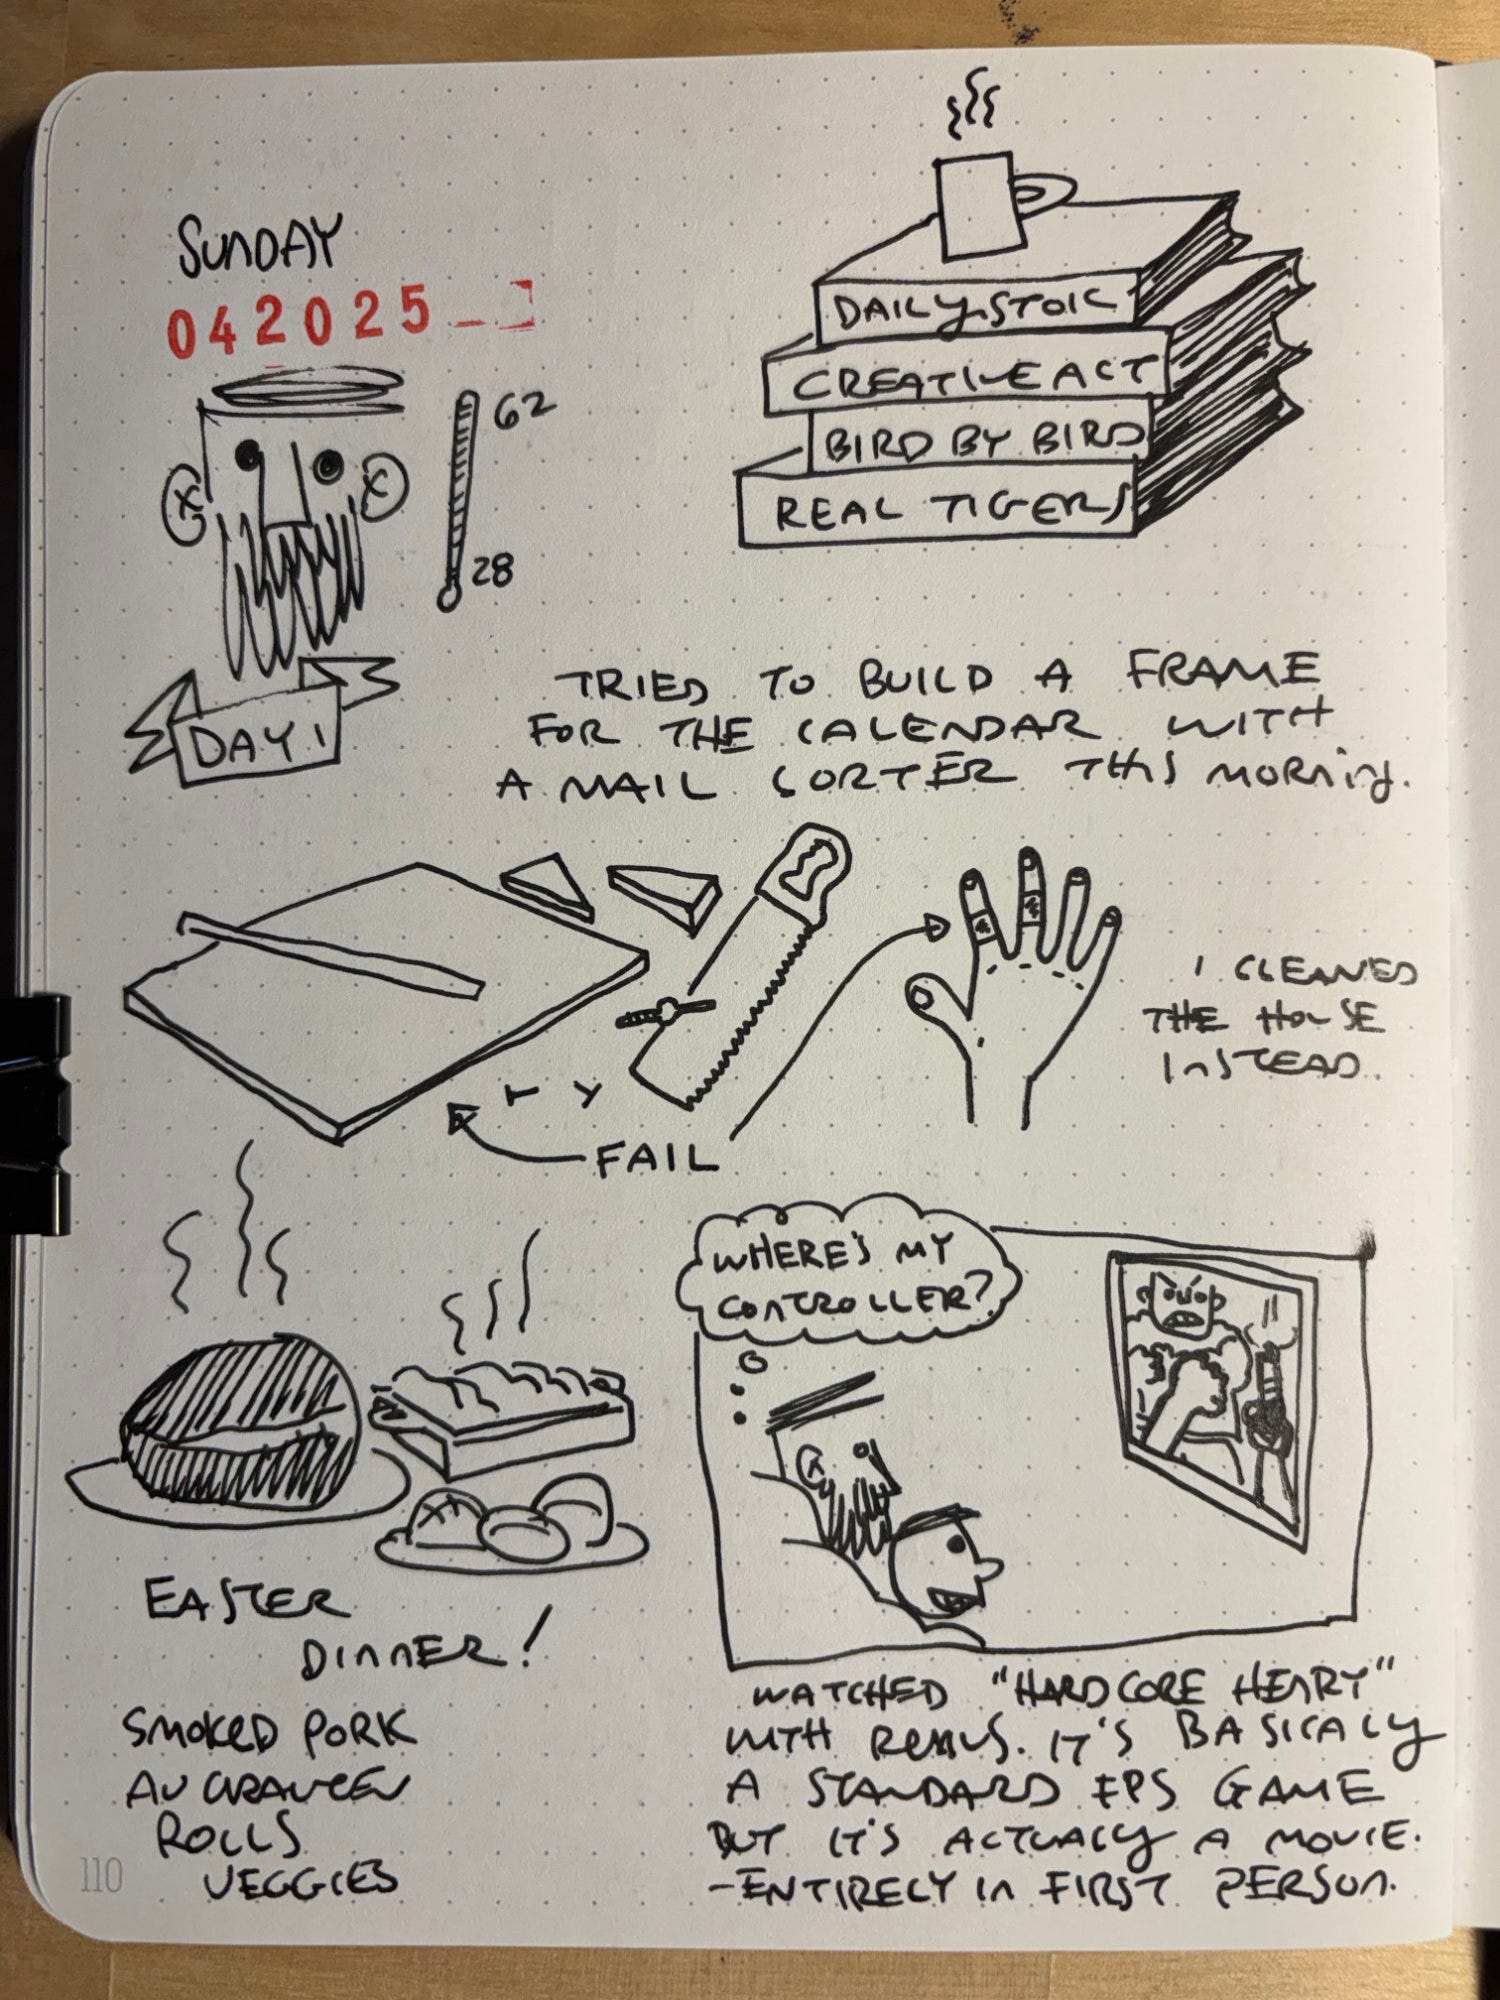 SUNDAY
042025
62
28
DAY 1
DAILY STOIC
CREATIVE ACT
BIRD BY BIRD
REAL TIGERS
TRIED TO BUILD A FRAME
FOR THE CALENDAR WITH
A MAIL SORTER THIS MORNING.
FAIL
I CLEANED
THE HOUSE
INSTEAD.
EASTER
DINNER!
SMOKED PORK
AU
ROLLS
VEGGIES
WHERE'S MY
CONTROLLER?
WATCHED "HARDCORE HENRY"
WITH REMUS. IT'S BASICALY
A STANDARD FPS GAME
BUT IT'S ACTUALLY A MOVIE.
-ENTIRELY IN FIRST PERSON.
110